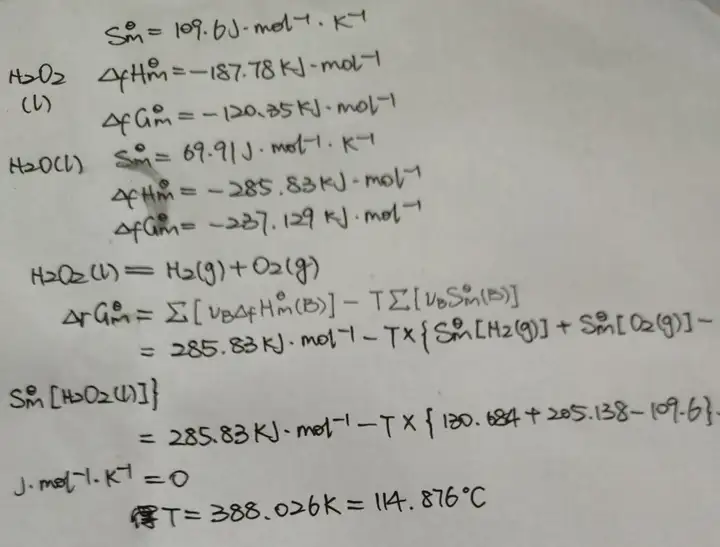 Sm⊖ = 109.6 J·mol⁻¹·K⁻¹
H₂O₂ ΔfHm⊖ = -187.78 KJ·mol⁻¹
(l) ΔfGm⊖ = -120.35 KJ·mol⁻¹
H₂O(l) Sm⊖ = 69.91 J·mol⁻¹·K⁻¹
ΔfHm⊖ = -285.83 KJ·mol⁻¹
ΔfGm⊖ = -237.129 KJ·mol⁻¹
H₂O₂(l) = H₂(g) + O₂(g)
ΔrGm⊖ = Σ[νBΔfHm⊖(B)] - TΣ[νBSm⊖(B)]
= 285.83 KJ·mol⁻¹ - T×{Sm⊖[H₂(g)] + Sm⊖[O₂(g)] -
Sm⊖[H₂O₂(l)]}
= 285.83 KJ·mol⁻¹ - T×{130.684 + 205.138 - 109.6}·
J·mol⁻¹·K⁻¹ = 0
得 T = 388.026K = 114.876℃